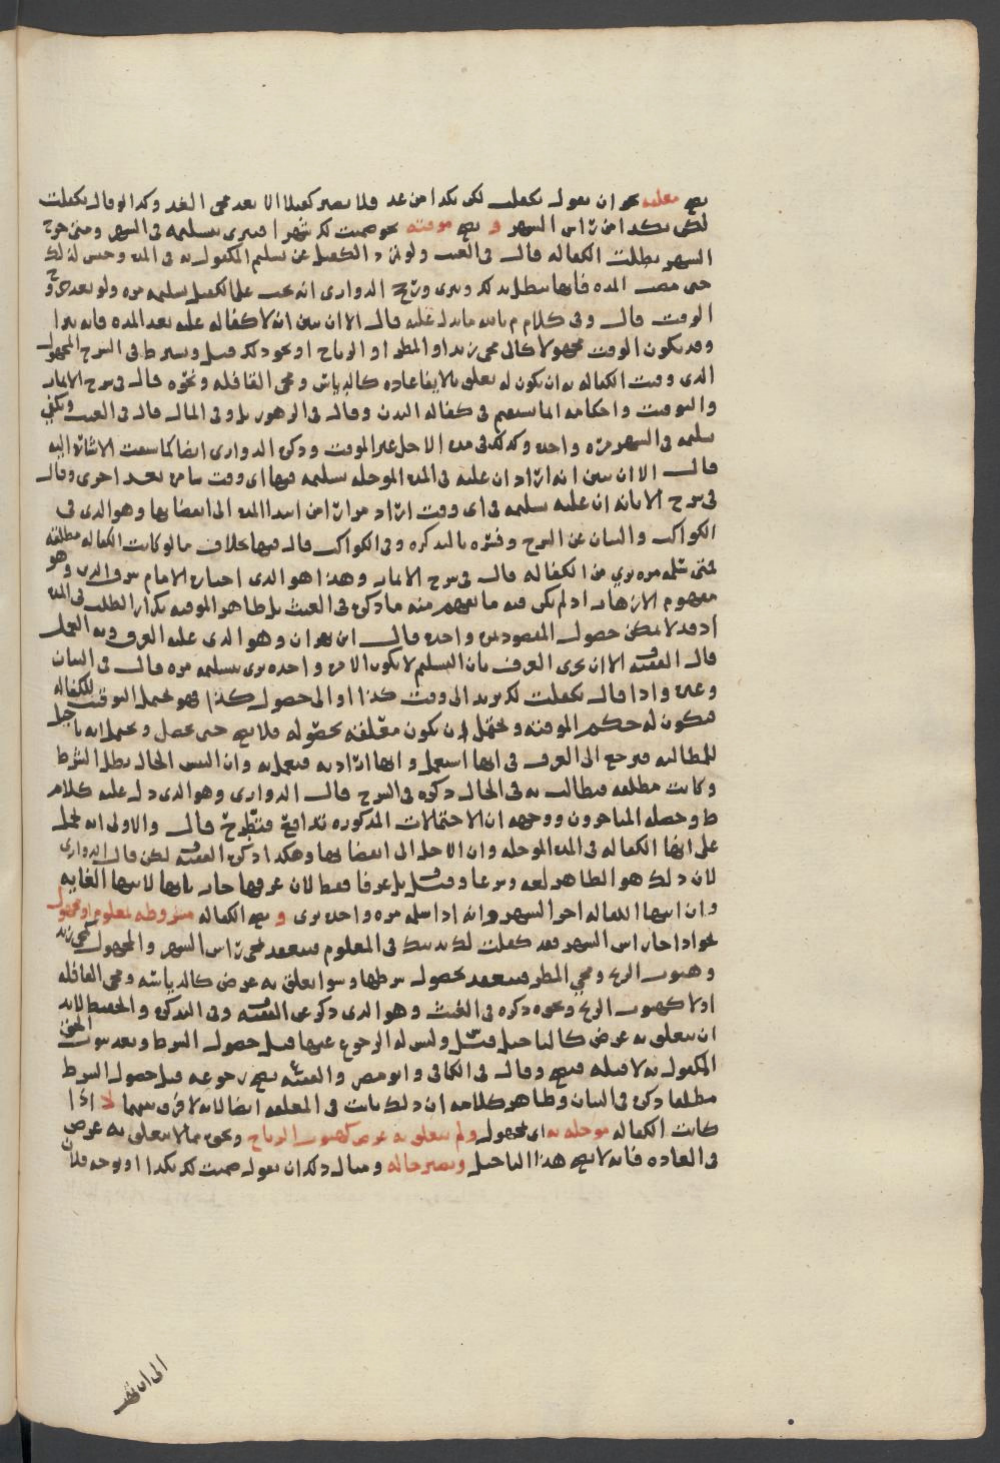 يصح معلقه نحو ان يقول تكفلت لك بكذا من غد فلا يصير كفيلا الا بعد مجى الغد وكذا لو قال تكفلت
لك بكذا من راس الشهر و يصح موقته نحو ضمنت لك شهرا فيبرى بتسليمه فى الشهر ومتى خرج
الشهر بطلت الكفاله قال فى الغيث ولو الكفيل عن تسليم المكفول به فى المده وحبس لذلك
حتى مضت المده فانها تبطل بذلك ويبرى ورجح الدوارى انه يجب على الكفيل تسليمه مره ولو بعد خروج
الوقت قال وفى كلام م بالله ما يدل عليه قال الا ان يبين انه لا كفاله عليه بعد المده فانه يبرا
وقد يكون الوقت مجهولا كالى مجى زيد او المطر او الرياح او نحو ذلك قيل ويشترط فى الشرح المجهول
الذى وقت الكفاله به ان يكون له تعلق بالايفا عاده كالدياس ومجى القافله ونحوه قال فى شرح الاثمار
والتوقيت واحكامه انما يستقيم فى كفاله البدن وقال فى الزهور بل وفى المال قال فى الغيث ويكفى
تسليمه فى الشهر مره واحده وكذلك فى مده الاجل غير الموقت وذكر الدوارى ايضا كما سبقت الاشاره اليه
قال الا ان يبين انه اراد ان عليه فى المده الموجله تسليمه فيها اى وقت شا مره بعد اخرى وقال
فى شرح الابانه ان عليه تسليمه فى اى وقت اراد مرارا من ابتدا المده الى انقضايها وهو الذى فى
الكواكب والبيان عن الشرح وقرره بالتذكره وفى الكواكب قال فيها بخلاف ما لو كانت الكفاله مطلقه
فمتى سلمه مره بري من الكفاله قال فى شرح الاثمار وهذا هو الذى اختاره الامام شرف الدين وهو
مفهوم الازهار اذ لم يكن فيه ما يفهم منه ما ذكره فى الغيث بل ظاهر الموقته تكرار الطلب فى المده
اذ قد لا يمكن حصول المقصود بمره واحده قال ابن بهران وهو الذى عليه العرف وبه العمل
قال الفقيه الا ان يجرى العرف بان التسليم لا يكون الا مره واحده برى بتسليمه مره قال فى البيان
وغيره واذا قال تكفلت لك بزيد الى وقت كذا او الى حصول كذا فهو يحتمل التوقيت للكفاله
فيكون له حكم الموقته ويحتمل ان يكون معلقه بحصوله فلا يصح حتى يحصل ويحتمل انه تاجيل
للمطالبه فيرجع الى العرف فى ايها استعمل وايها اراد به فيعمل به وان التبس الحال بطل الشرط
وكانت مطلقه فيطالب به فى الحال ذكره فى الشرح قال الدوارى وهو الذى دل عليه كلام
ط وحصله المتاخرون ووجهه ان الاحتمالات المذكوره تدافع فتطرح قال والاولى انه يحمل
على انها الكفاله فى المده الموجله وان الاجل الى انقضايها وهكذا ذكره الفقيه لكن قال الدوارى
لان ذلك هو الظاهر لغه وشرعا وقيل بل عرفا فقط لان عرفها جار بانها لانتها الغايه
وان انتها الكفاله اخر الشهر وانه اذا سلمه مره واحده برى و يصح الكفاله مشروطه بمعلوم او مجهول
نحو اذا جا راس الشهر فقد كفلت لك بدينك فى المعلوم فينعقد لمجى راس الشهر والمجهول كمجى زيد
وهبوب الريح ومجي المطر فينعقد بحصول شرطها وسوا تعلق به غرض كالدياسه ومجى القافله
او لا كهبوب الريح ونحوه ذكره فى الغيث وهو الذى ذكره عن الفقيه وفى التذكره والحفيظ لا بد
ان يتعلق به غرض كالتاجيل وليس له الرجوع عنها قبل حصول الشرط وبعد ثبوت الحق
المكفول به لا قبله فيصح وقال فى الكافى وابو مضر والفقيه يصح رجوعه قبل حصول الشرط
مطلقا ذكره فى البيان وظاهر كلامه ان ذلك ثابت فى المعلقه ايضا لانه لا فرق بينهما لا اذا
كانت الكفاله موجله به اى بمجهول ولم يتعلق به غرض كهبوب الرياح ونحوه مما لا يتعلق به غرض
فى العاده فانه لا يصح هذا التاجيل وتصير حاله ومثال ذلك ان يقول ضمنت لك بكذا او بوجه فلان
الى ان